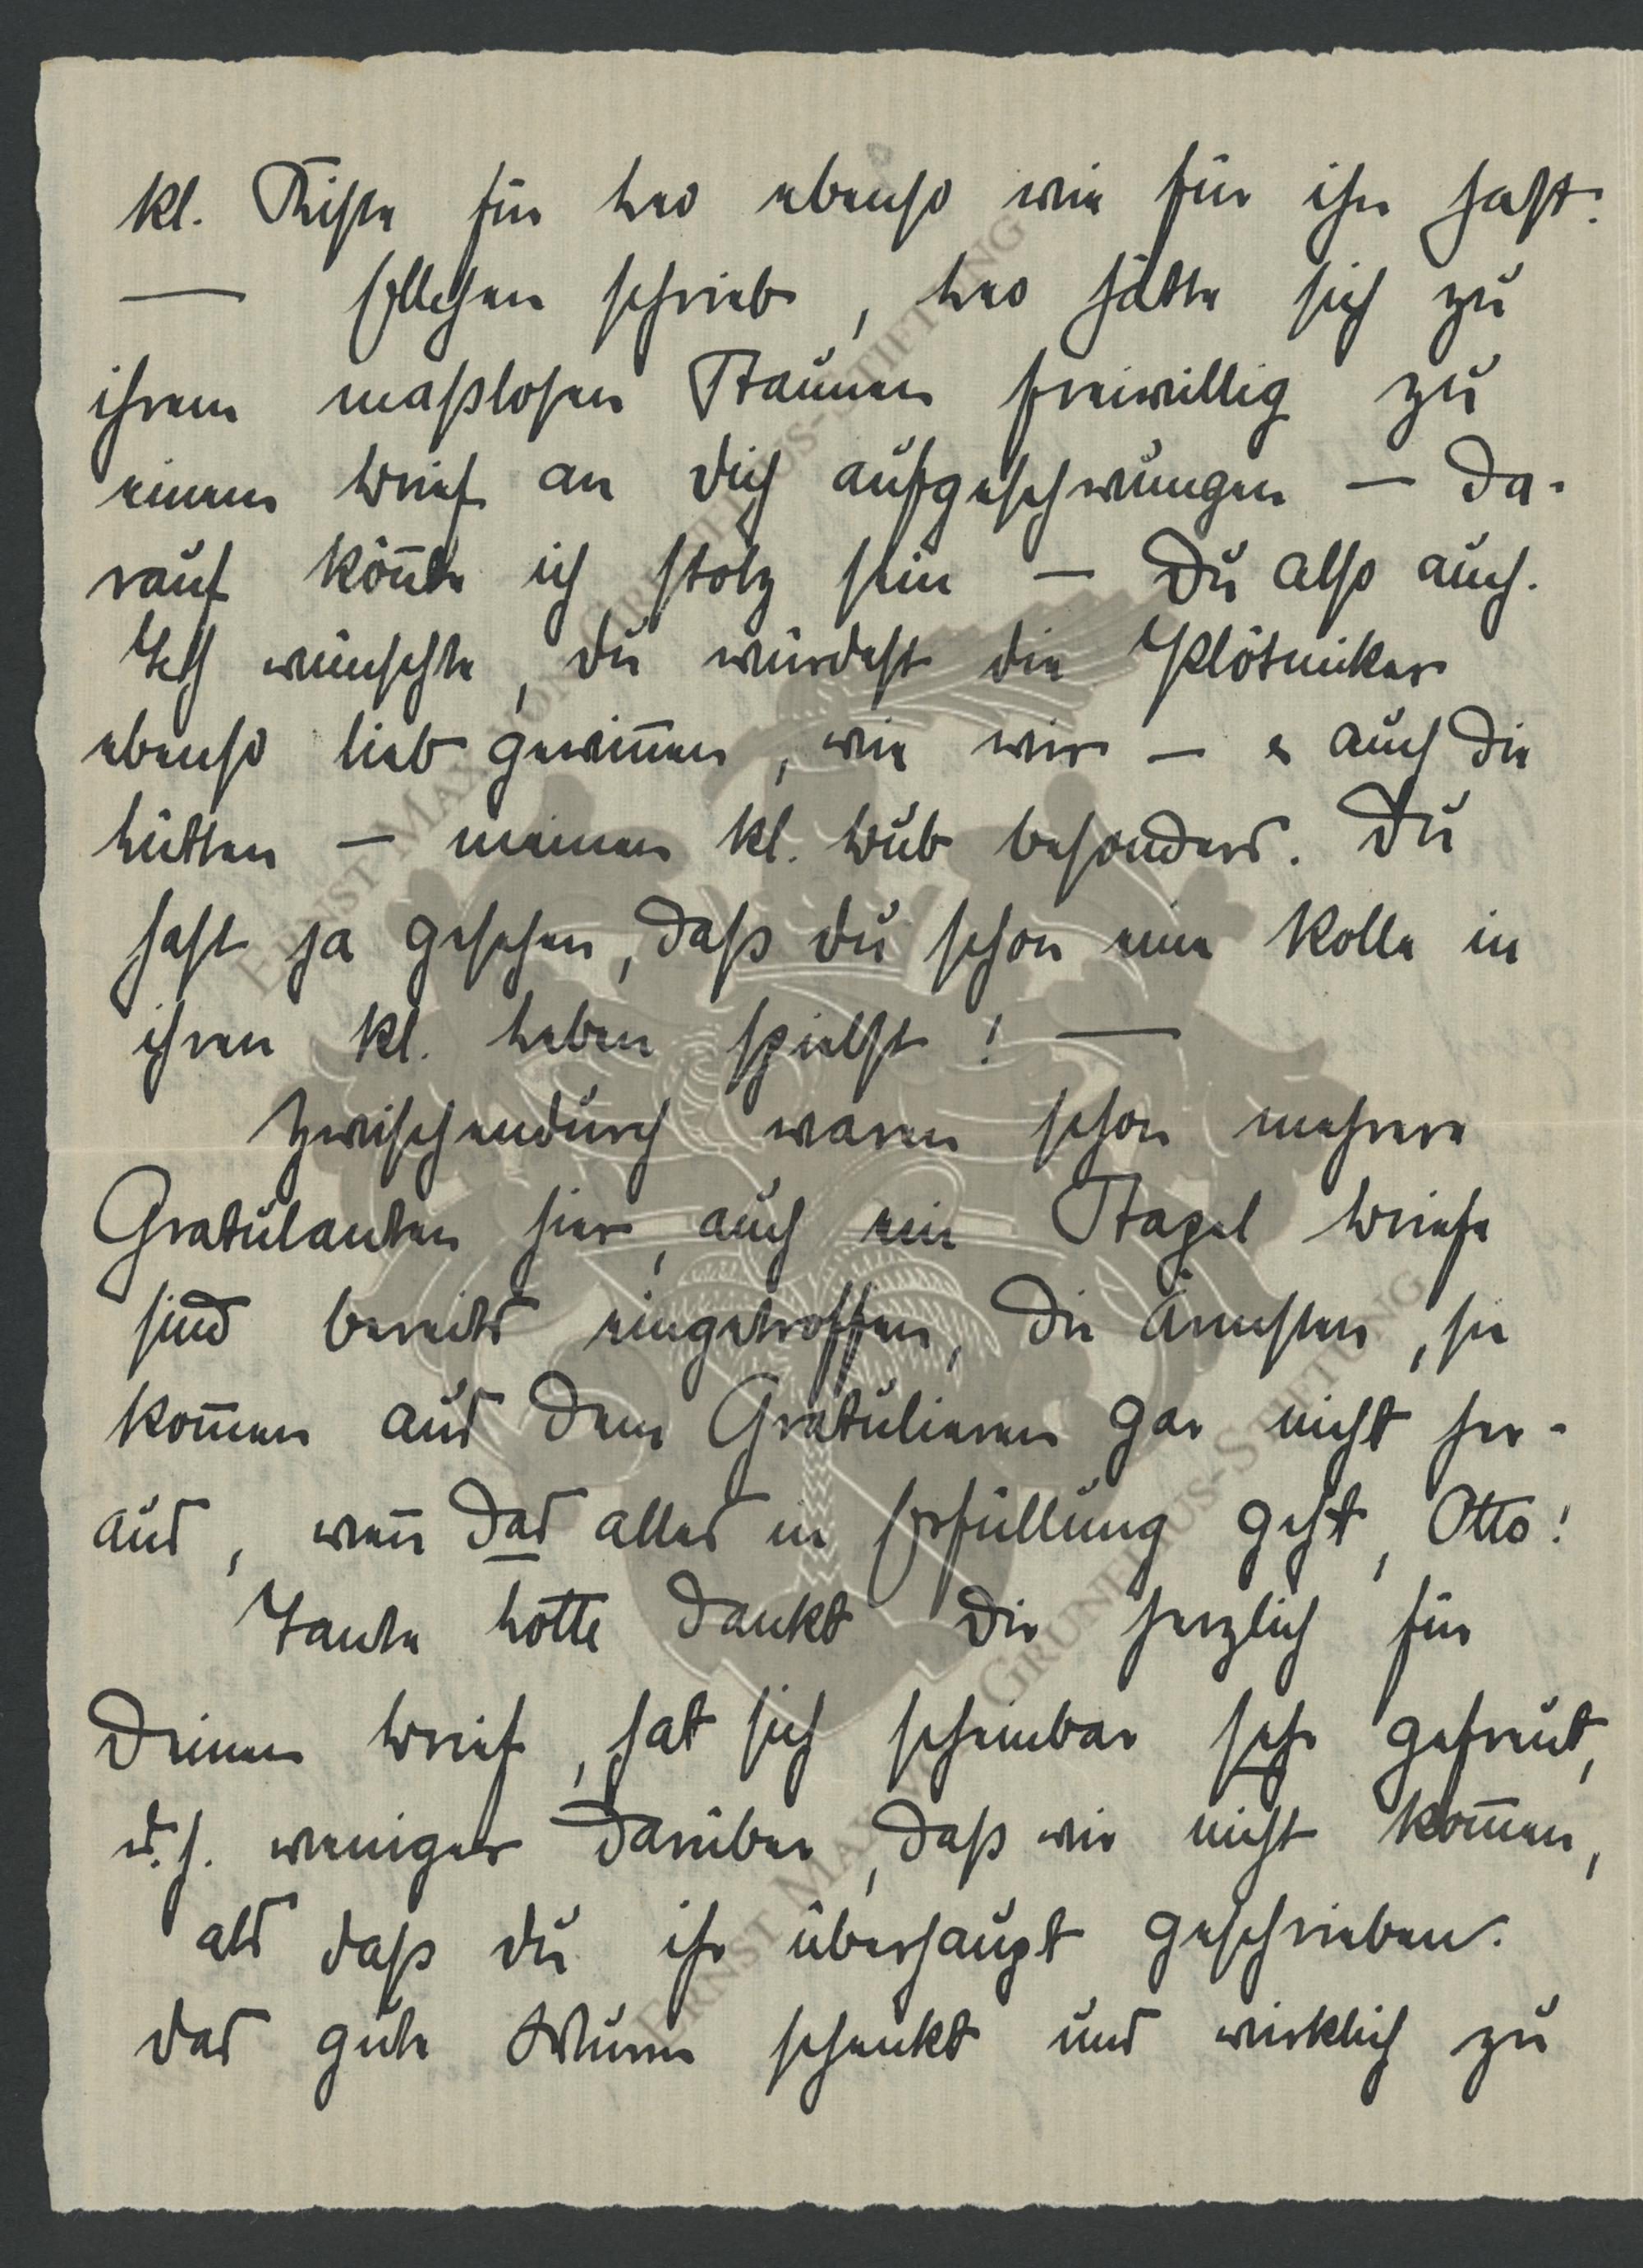 kl. Kiste für Leo ebenso wie für ihn hast.
— Ellchen schrieb, Leo hätte sich zu
ihrem maßlosen Staunen freiwillig zu
einem Brief an Dich aufgeschwungen — da-
rauf kön̄te ich stolz sein — Du also auch.
Ich wünschte, Du würdest die Klötniker
ebenso lieb gewin̄en, wie wir — & auch die
Lütten — meinen kl. Bub besonders. Du
hast ja gesehen, daß Du schon eine Rolle in
ihren kl. Leben spielst! —
Zwischendurch waren schon mehrere
Gratulanten hier, auch ein Stapel Briefe
sind bereits eingetroffen, die Ärmsten, sie
kom̄en aus dem Gratulieren gar nicht her-
aus, wen̄ das alles in Erfüllung geht, Otto!
Tante Lotte dankt Dir herzlich für
Deinen Brief, hat sich scheinbar sehr gefreut,
d.h. weniger darüber, daß wir nicht kom̄en,
als daß Du ihr überhaupt geschrieben.
Das gute Wurm schenkt uns wirklich zu
ERNST MAX VON GRUNELIUS-STIFTUNG
ERNST MAX VON GRUNELIUS-STIFTUNG